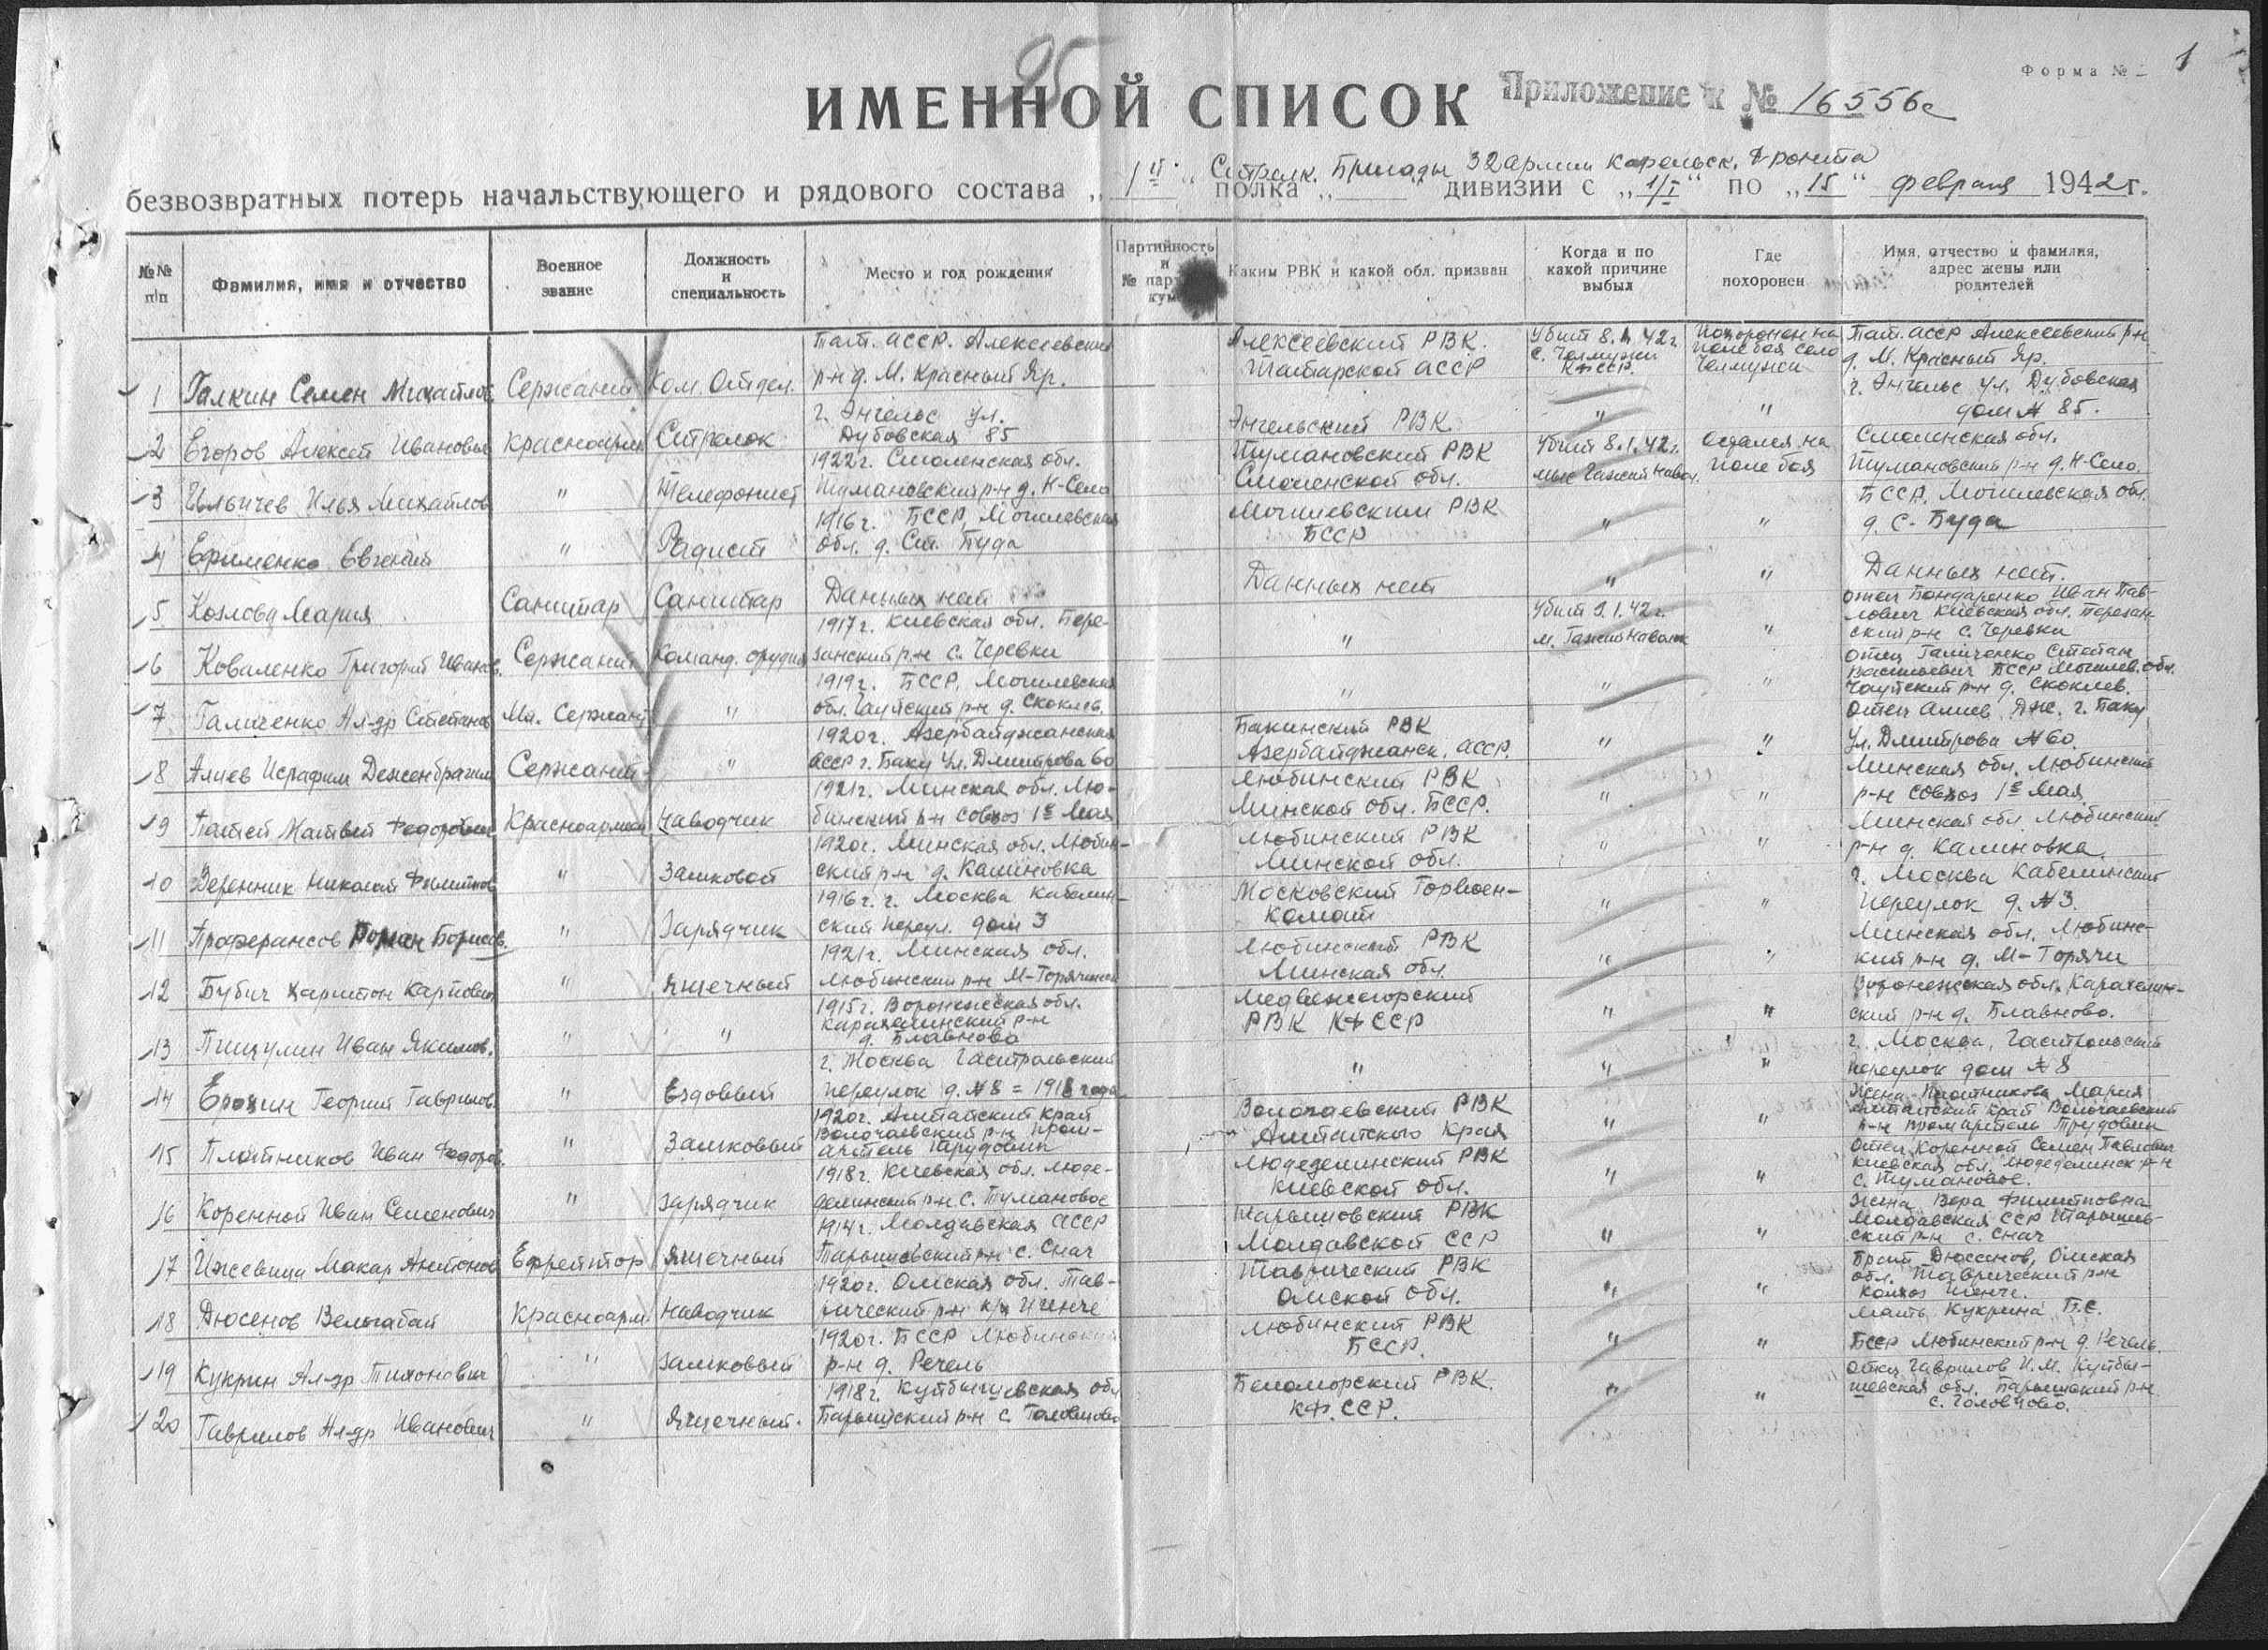 95
Форма №
1
ИМЕННОЙ СПИСОК
Приложение к № 16556с
безвозвратных потерь начальствующего и рядового состава „1й“ Стрелк. Бригады 32 Армии Карельск. Фронта полка „ “ дивизии с „1/I“ по „15“ февраля 1942 г.
№№ п/п
Фамилия, имя и отчество
Военное звание
Должность и специальность
Место и год рождения
Партийность и
Каким РВК и какой обл. призван
Когда и по какой причине выбыл
Где похоронен
Имя, отчество и фамилия, адрес жены или родителей
1 Галкин Семен Михайлов. Сержант Ком. Отдел. Тат. АССР. Алексеевский р-н д. М. Красный Яр. Алексеевский РВК. Татарской АССР Убит 8.1.42г. с. Челмужи КФССР. Похоронен на поле боя село Челмужи Тат. АССР Алексеевский р-н д. М. Красный Яр.
2 Егоров Алексей Иванович Красноарм. Стрелок г. Энгельс ул. Дубовская 85 Энгельский РВК " " г. Энгельс ул. Дубовская дом № 85.
3 Ильичев Илья Михайлов " Телефонист 1922г. Смоленская обл. Тумановский р-н д. Н-Село Тумановский РВК Смоленской обл. Убит 8.1.42г. мыс Остался на поле боя Смоленская обл. Тумановский р-н д. Н-Село.
4 Ефименко Евгений " Радист 1916г. БССР, Могилевская обл. д. Ст. Буда Могилевским РВК БССР " " БССР, Могилевская обл. д. С. Буда
5 Козлова Мария Санитар Санитар Данных нет Данных нет " " Данных нет.
6 Коваленко Григорий Иванов. Сержант Команд. орудия 1917г. Киевская обл. Перезанский р-н с. Черевки " Убит 9.1.42г. " отец Бондаренко Иван Павлович Киевская обл. Перезанский р-н с. Черевки
7 Галиченко Ал-др Степанов Мл. Сержант " 1919г. БССР, Могилевская обл. Чаусский р-н д. Скоклев. " " " Отец Галиченко Степан Васильевич БССР Могилев. обл. Чаусский р-н д. Скоклев.
8 Алиев Исрафил Сержант " 1920г. Азербайджанская АССР г. Баку Ул. Дмитрова 60 Бакинский РВК Азербайджанск. АССР. " " Отец Алиев Дж. г. Баку Ул. Дмитрова № 60.
9 Патей Матвей Федорович Красноармеец Наводчик 1921г. Минская обл. Любинский р-н совхоз 1е Мая Любинский РВК Минской обл. БССР. " " Минская обл. Любинский р-н совхоз 1е Мая.
10 Веренник Николай Филиппов " Замковой 1920г. Минская обл. Любинский р-н д. Калиновка Любинский РВК Минской обл. " " Минская обл. Любинский р-н д. Калиновка.
11 Проферансов Роман Борисов. " Зарядчик 1916г. г. Москва переул. дом 3 Московский Горвоенкомат " " г. Москва переулок д. № 3.
12 Бубич Харитон Карпович " Ящечный 1921г. Минская обл. Любинский р-н Любинский РВК Минская обл. " " Минская обл. Любинский р-н д. М-Горячи
13 Пищулин Иван Якимов. " " 1915г. Воронежская обл. р-н д. Блавново Медвежегорский РВК КФССР " " Воронежская обл. р-н д. Блавново.
14 Ерохин Георгий Гаврилов. " Ездовый г. Москва переулок д. № 8 = 1918 года " " " г. Москва, переулок дом № 8
15 Плотников Иван Федоров. " Замковый 1920г. Алтайский Край Волочаевский р-н пром-артель Трудовик Волочаевский РВК Алтайского Края " " Жена Плотникова Мария Алтайский Край Волочаевский р-н промартель Трудовик
16 Коренной Иван Семенович " Зарядчик 1918г. Киевская обл. р-н с. Тумановое РВК Киевской обл. " " Отец Коренной Семен Павлович Киевская обл. р-н с. Тумановое.
17 Ижевица Макар Антонов Ефрейтор Ящечный 1914г. Молдавская АССР р-н с. Снач РВК Молдавской ССР " " Жена Вера Филипповна Молдавская ССР р-н с. Снач
18 Дюсенов Красноарм. Наводчик 1920г. Омская обл. Таврический р-н к/х Игенче Таврический РВК Омской обл. " " Брат Дюсенов, Омская обл. Таврический р-н колхоз Игенче.
19 Кукрин Ал-др Тихонович " Замковый 1920г. БССР Любинский р-н д. Речель Любинский РВК БССР. " " Мать Кукрина П.Е. БССР Любинский р-н д. Речель.
20 Гаврилов Ал-др Иванович " Ящечный. 1918г. Куйбышевская обл. Барышский р-н с. Головцово Беломорский РВК. КФ.ССР. " " Отец Гаврилов И.М. Куйбышевская обл. Барышский р-н. с. Головцово.